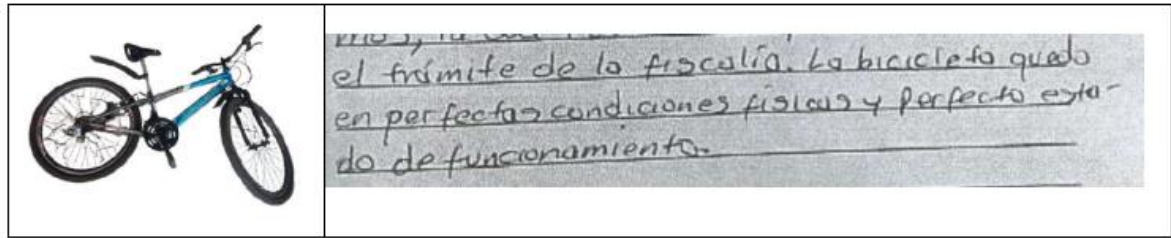 el trámite de la fiscalía. La bicicleta quedo
en perfectas condiciones físicas y perfecto esta-
do de funcionamiento.